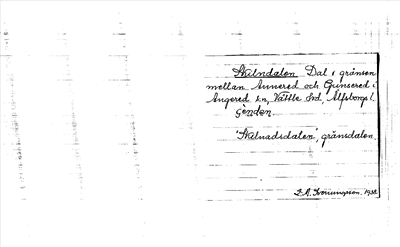 Skilndalen Dal i gränsen
mellan Annered och Gunnered i
Angered sn, Vättle hd, Älfsborgs l.
"Skilnadsdalen", gränsdalen.
1932